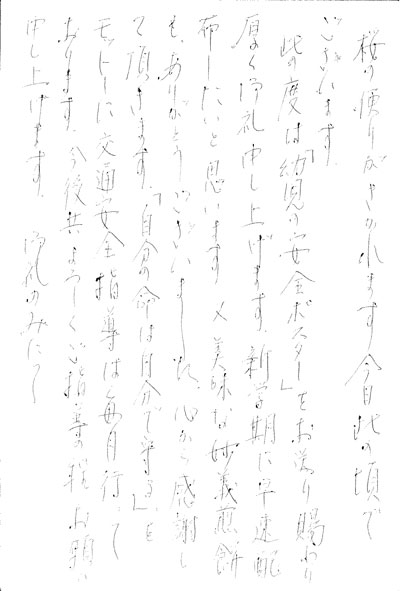 桜の便りがきかれます今日此の頃で
ございます。
此の度は「幼児の安全ポスター」をお送り賜わり
厚く御礼申し上げます。新学期に早速配
布したいと思います 又美味な妙義煎餅
も、ありがとうございました。心から感謝し
て頂きます。「自分の命は自分で守る」を
モットーに交通安全指導は毎月行って
おります。今後共よろしくご指導の程お願い
申し上げます。 御礼のみにて